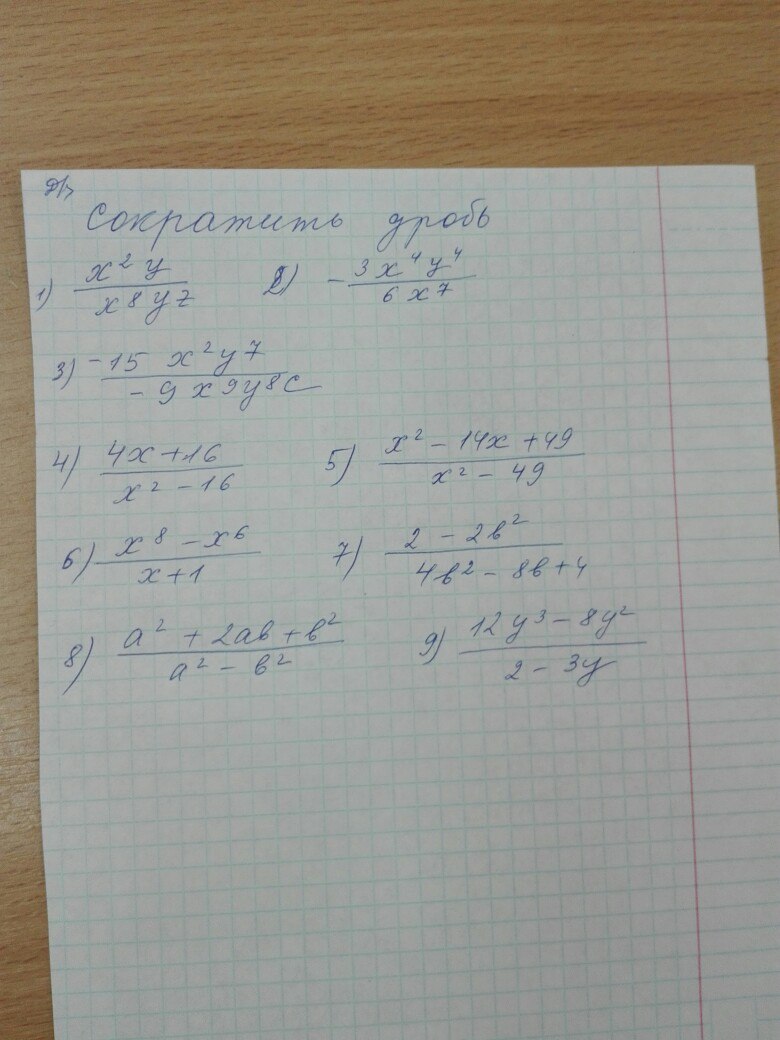 Д/з
Сократить дробь
1) x² y / x⁸ y z 2) - 3 x⁴ y⁴ / 6 x⁷
3) -15 x² y⁷ / -9 x⁹ y⁸ c
4) 4x + 16 / x² - 16 5) x² - 14x + 49 / x² - 49
6) x⁸ - x⁶ / x + 1 7) 2 - 2b² / 4b² - 8b + 4
8) a² + 2ab + b² / a² - b² 9) 12y³ - 8y² / 2 - 3y